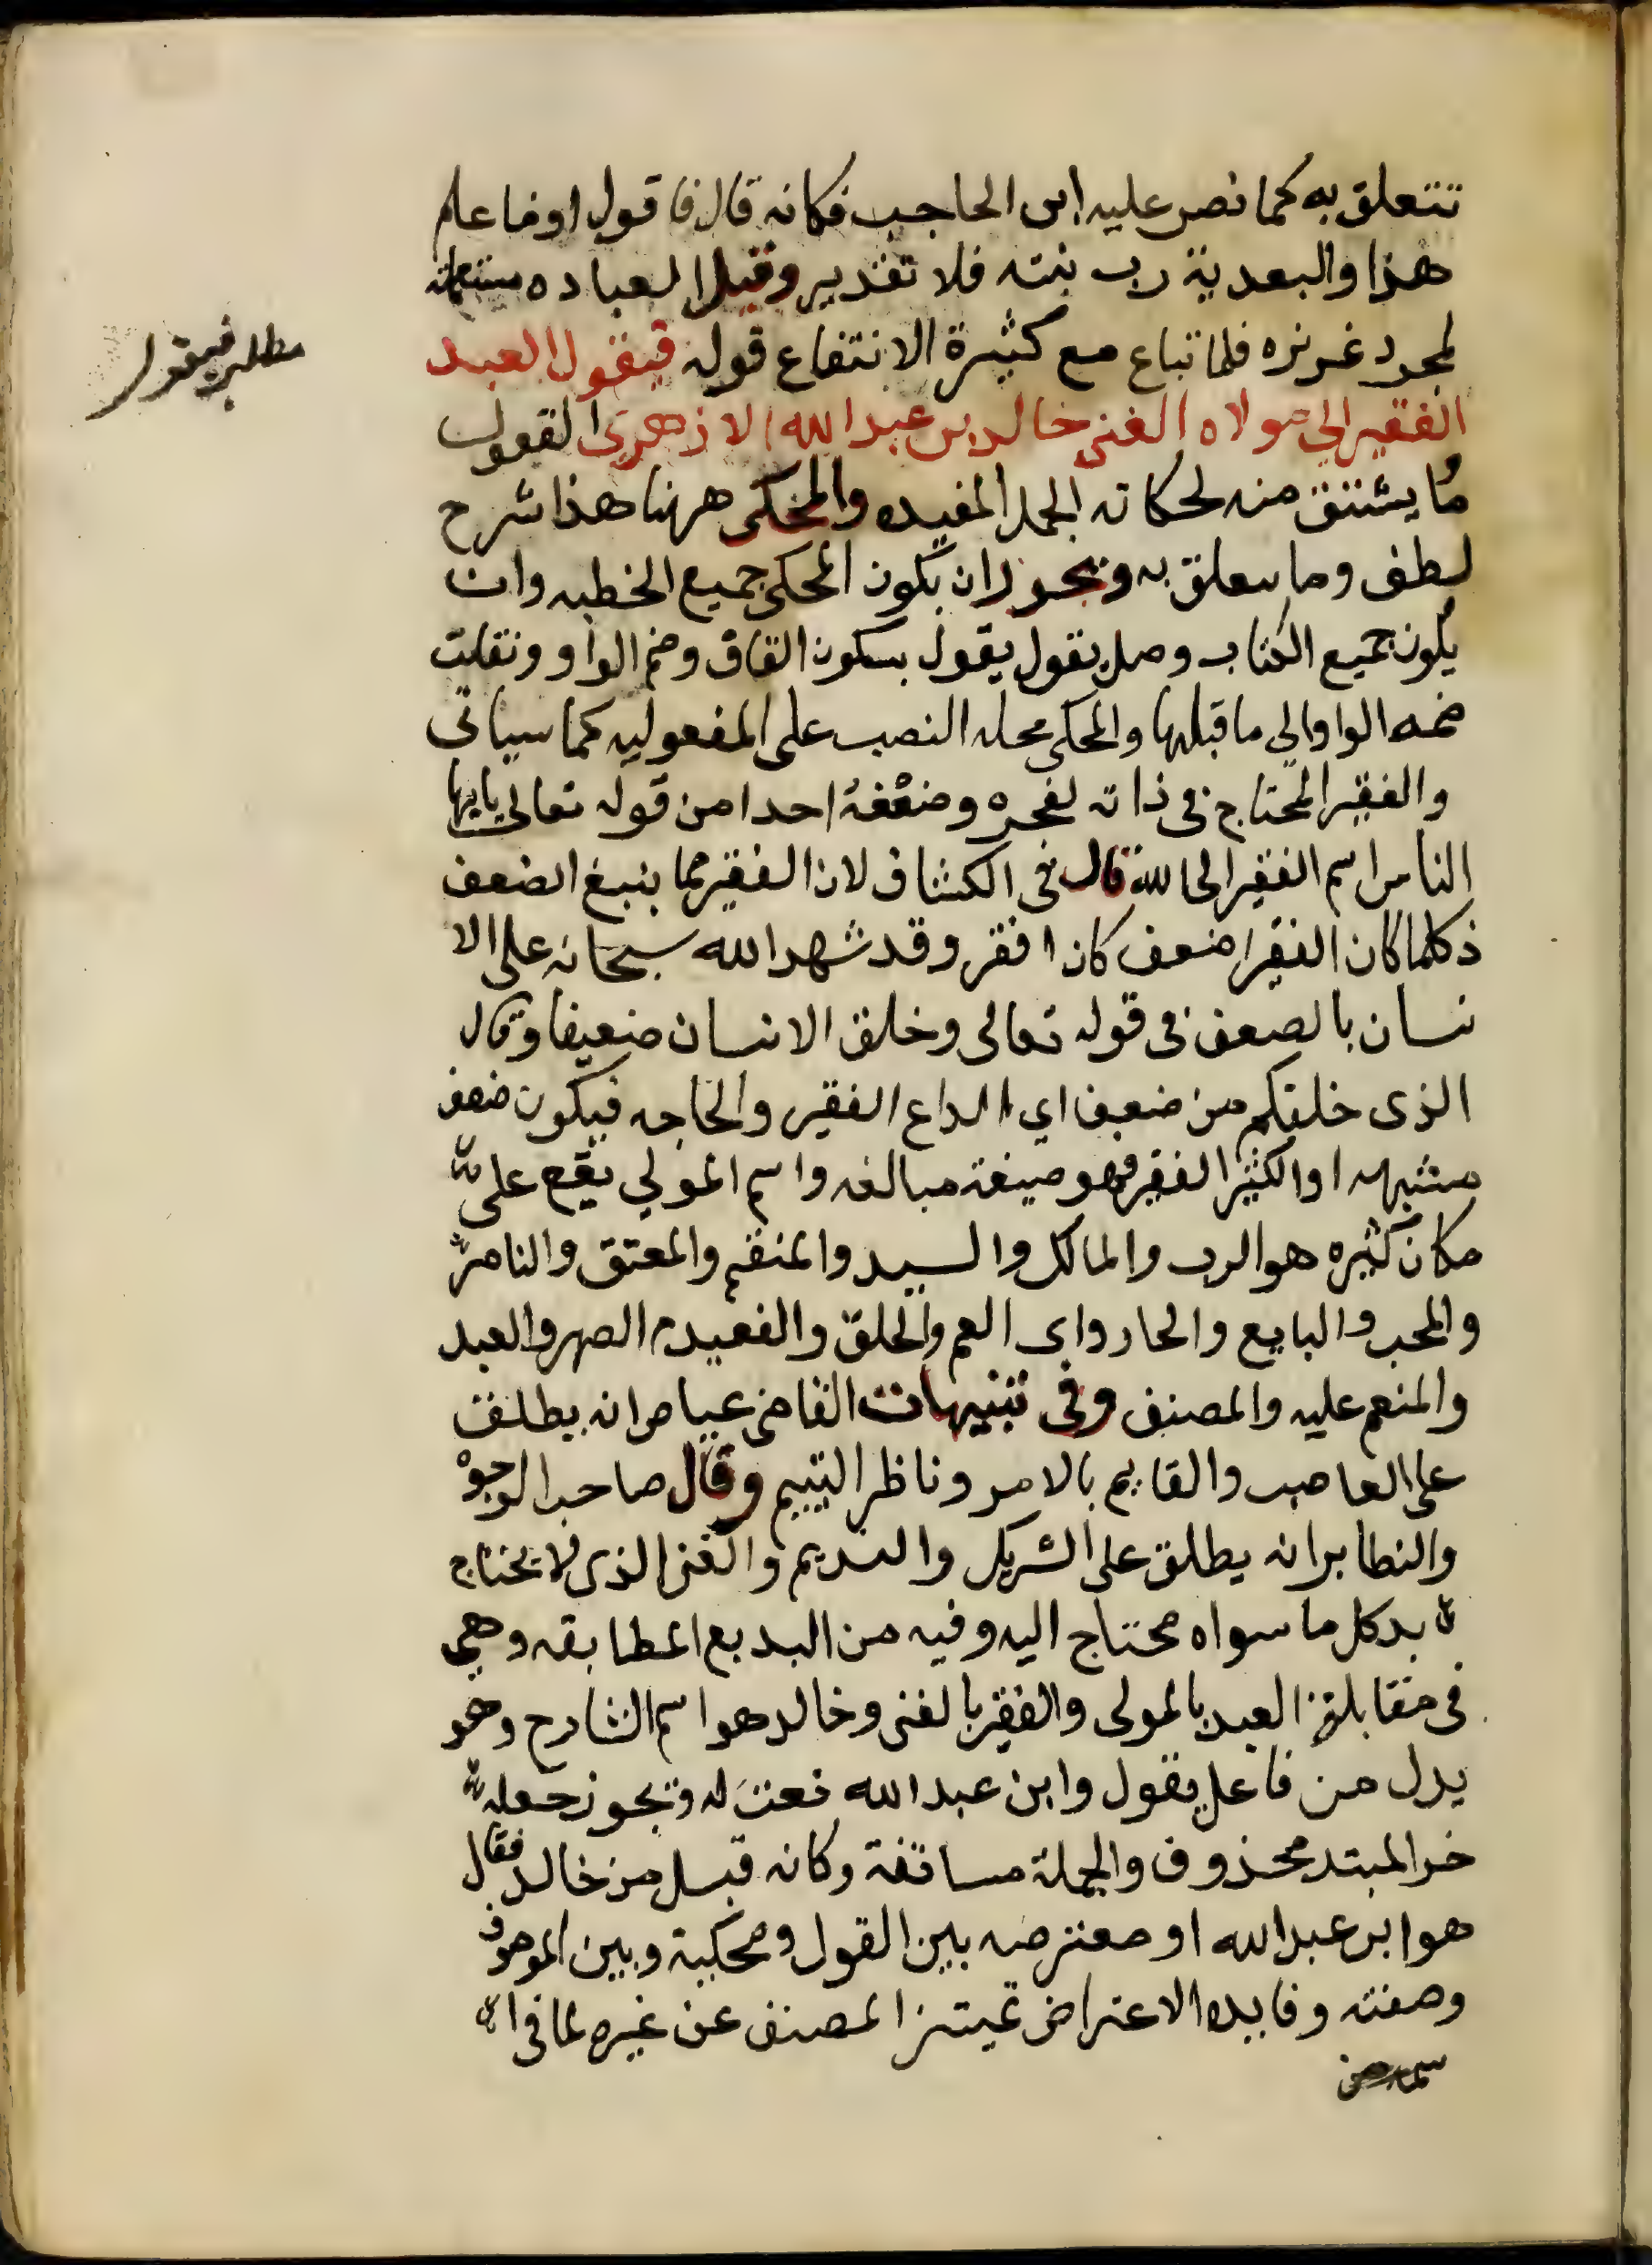 تتعلق به كما نص عليه ابن الحاجب فكانه قال فاقول او فاعلم
هذا والبعدية رب نيته فلا تقدير وقيل العباده مستعمله
لمجرد غريزه فلما تباع مع كثيرة الانتفاع قوله فيقول العبد
مطلب فيقول
الفقير الي مولاه الغني خالد بن عبدالله الازهري القول
ما يشتق منه لحكاته الجمل المفيده والمحكى ههنا هذا شرح
لطف وما يتعلق به ويجوز ان يكون المحكى جميع الخطبه وان
يكون جميع الكتاب وصل يقول يقول بسكون القاف وضم الواو ونقلت
ضمه الواو الي ما قبلها والمحكى محله النصب على المفعوليه كما سياتى
والفقير المحتاج فى ذاته لعجزه وضعفه احدا من قوله تعالى يايها
الناس اسم الفقير الى الله قال فى الكشاف لان الفقير مما يتبع الضعف
ذكلما كان الفقير اضعف كان افقر وقد شهد الله سبحانه على الا
نسان بالضعف فى قوله تعالى وخلق الانسان ضعيفا وقال
الذى خلقكم من ضعف اي الفقير والحاجه فيكون صفه
مشبهه او الكثير الفقير فهو صيغة مبالغه واسم المولي يقع على
مكان كثيره هو الرب والمالك والسيد والمنعم والمعتق والناصر
والمحب والبايع والجار وابى العم والحلق والعقيد والصهر والعبد
والمنعم عليه والمصنف وفى تنبيهات القاضى عياض انه يطلق
على العاصب والقايم بالامر وناظر اليتيم وقال صاحب الوجوه
والنظاير انه يطلق على الشريك والنديم والغنى الذى لا يحتاج
بدكل ما سواه محتاج اليه وفيه من البديع المطابقه وهى
فى مقابلة العبد بالمولى والفقير بالغنى وخالد هو اسم الشارح وهو
بدل من فاعل يقول وابن عبدالله نعت له ويجوز جعله
خبر المبتد محذوف والجملة مساتفة وكانه قيل من خالد فقال
هو ابن عبدالله او معترضه بين القول ومحكيه وبين الموصوف
وصفته وفايده الاعتراض تميتز المصنف عن غيره لما فى